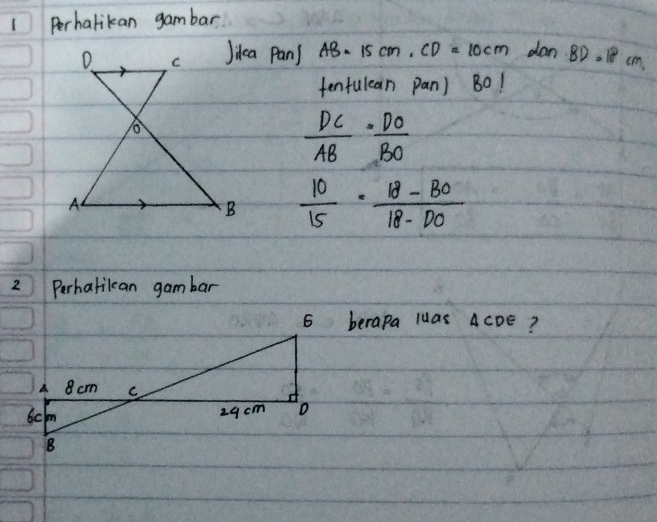 1 Perhatikan gambar
Jika panj AB = 15 cm, CD = 10 cm dan BD = 18 cm,
tentukan panj BO!
D C
O
A B
DC/AB = DO/BO
10/15 = 18 - BO/18 - DO
2 Perhatikan gambar
E berapa luas ΔCDE ?
A 8 cm C
24 cm D
6cm
B